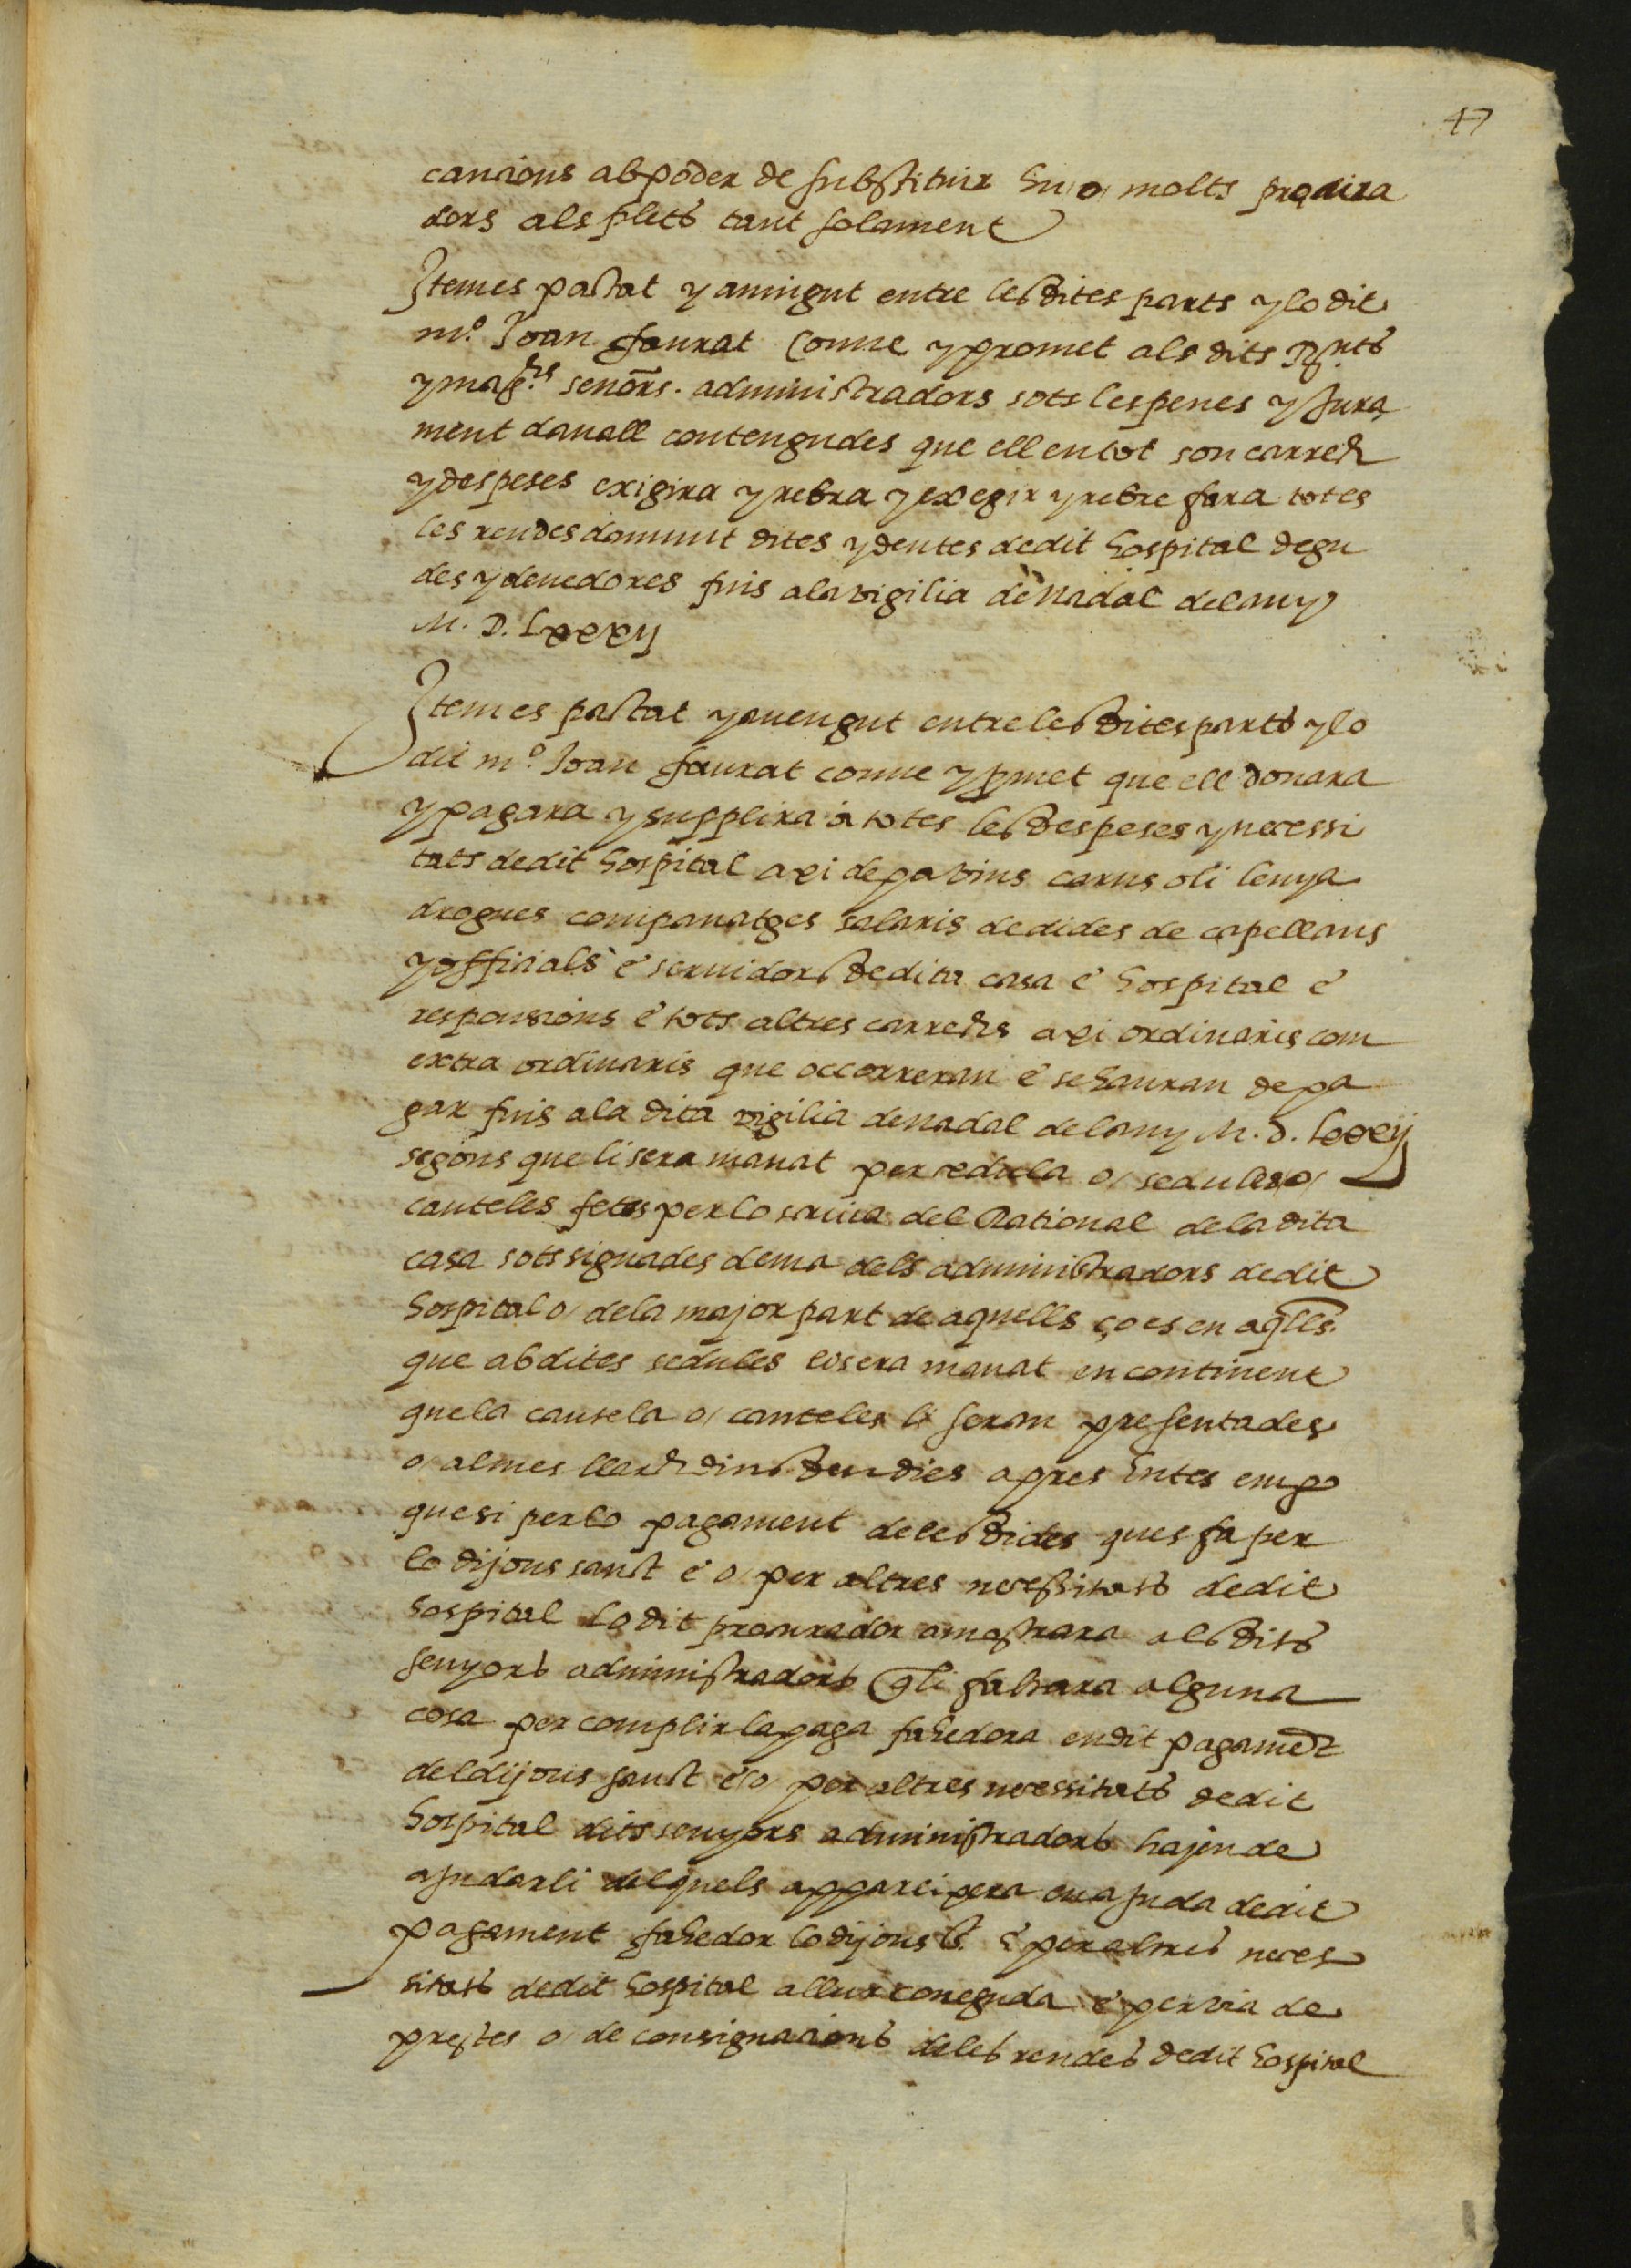 47
cancions ab poder de substituir hu o molts procura
dors als plets tant solament
Item es pactat y avingut entre les dites parts y lo dit
mº. Joan faurat Conve y promet als dits Rnts
y magchs senors. administradors sots les penes y jura
ment davall contengudes que ell en tot son carrech
y despeses exigira y rebra y exegir y rebre fara totes
les rendes damunt dites y deutes de dit hospital degu
des y devedores fins a la vigilia de Nadal del any
M. D. Lxxxy
Item es pactat y avengut entre les dites parts y lo
dit mº. Joan faurat conve y pmet que ell donara
y pagara y supplira a totes les despeses y necessi
tats de dit hospital axi de pa vins carns oli lenya
drogues companatges salaris de dides de capellans
y officials e servidors de dita casa e hospital e
responsions e tots altres carrechs axi ordinaris com
extra ordinaris que occorreran e se hauran de pa
gar fins a la dita vigilia de nadal del any M. D. Lxxxij
segons que li sera manat per cedula o sedules o
cauteles fetes per lo scriva del Rational de la dita
casa sots signades de ma dels administradors de dit
hospital o de la major part de aquells ço es en aqlls.
que ab dites sedules los era manat en continent
que la cautela o cauteles li seran presentades
o al mes llarch dins deu dies apres entes empo
que si per lo pagament de les dides ques fa per
lo dijous sanct e o per altres necessitats de dit
hospital lo dit procurador amostrara als dits
senyors administradors q li faltara alguna
cosa per complir la paga fahedora en dit pagamet
del dijous sanct e o per altres necessitats de dit
hospital dits senyors administradors hajen de
ajudarli del quels apparexera en ajuda de dit
pagament fahedor lo dijous st. e per altres neces
sitats de dit hospital a llur coneguda e per via de
prestes o de consignacions de les rendes de dit hospital